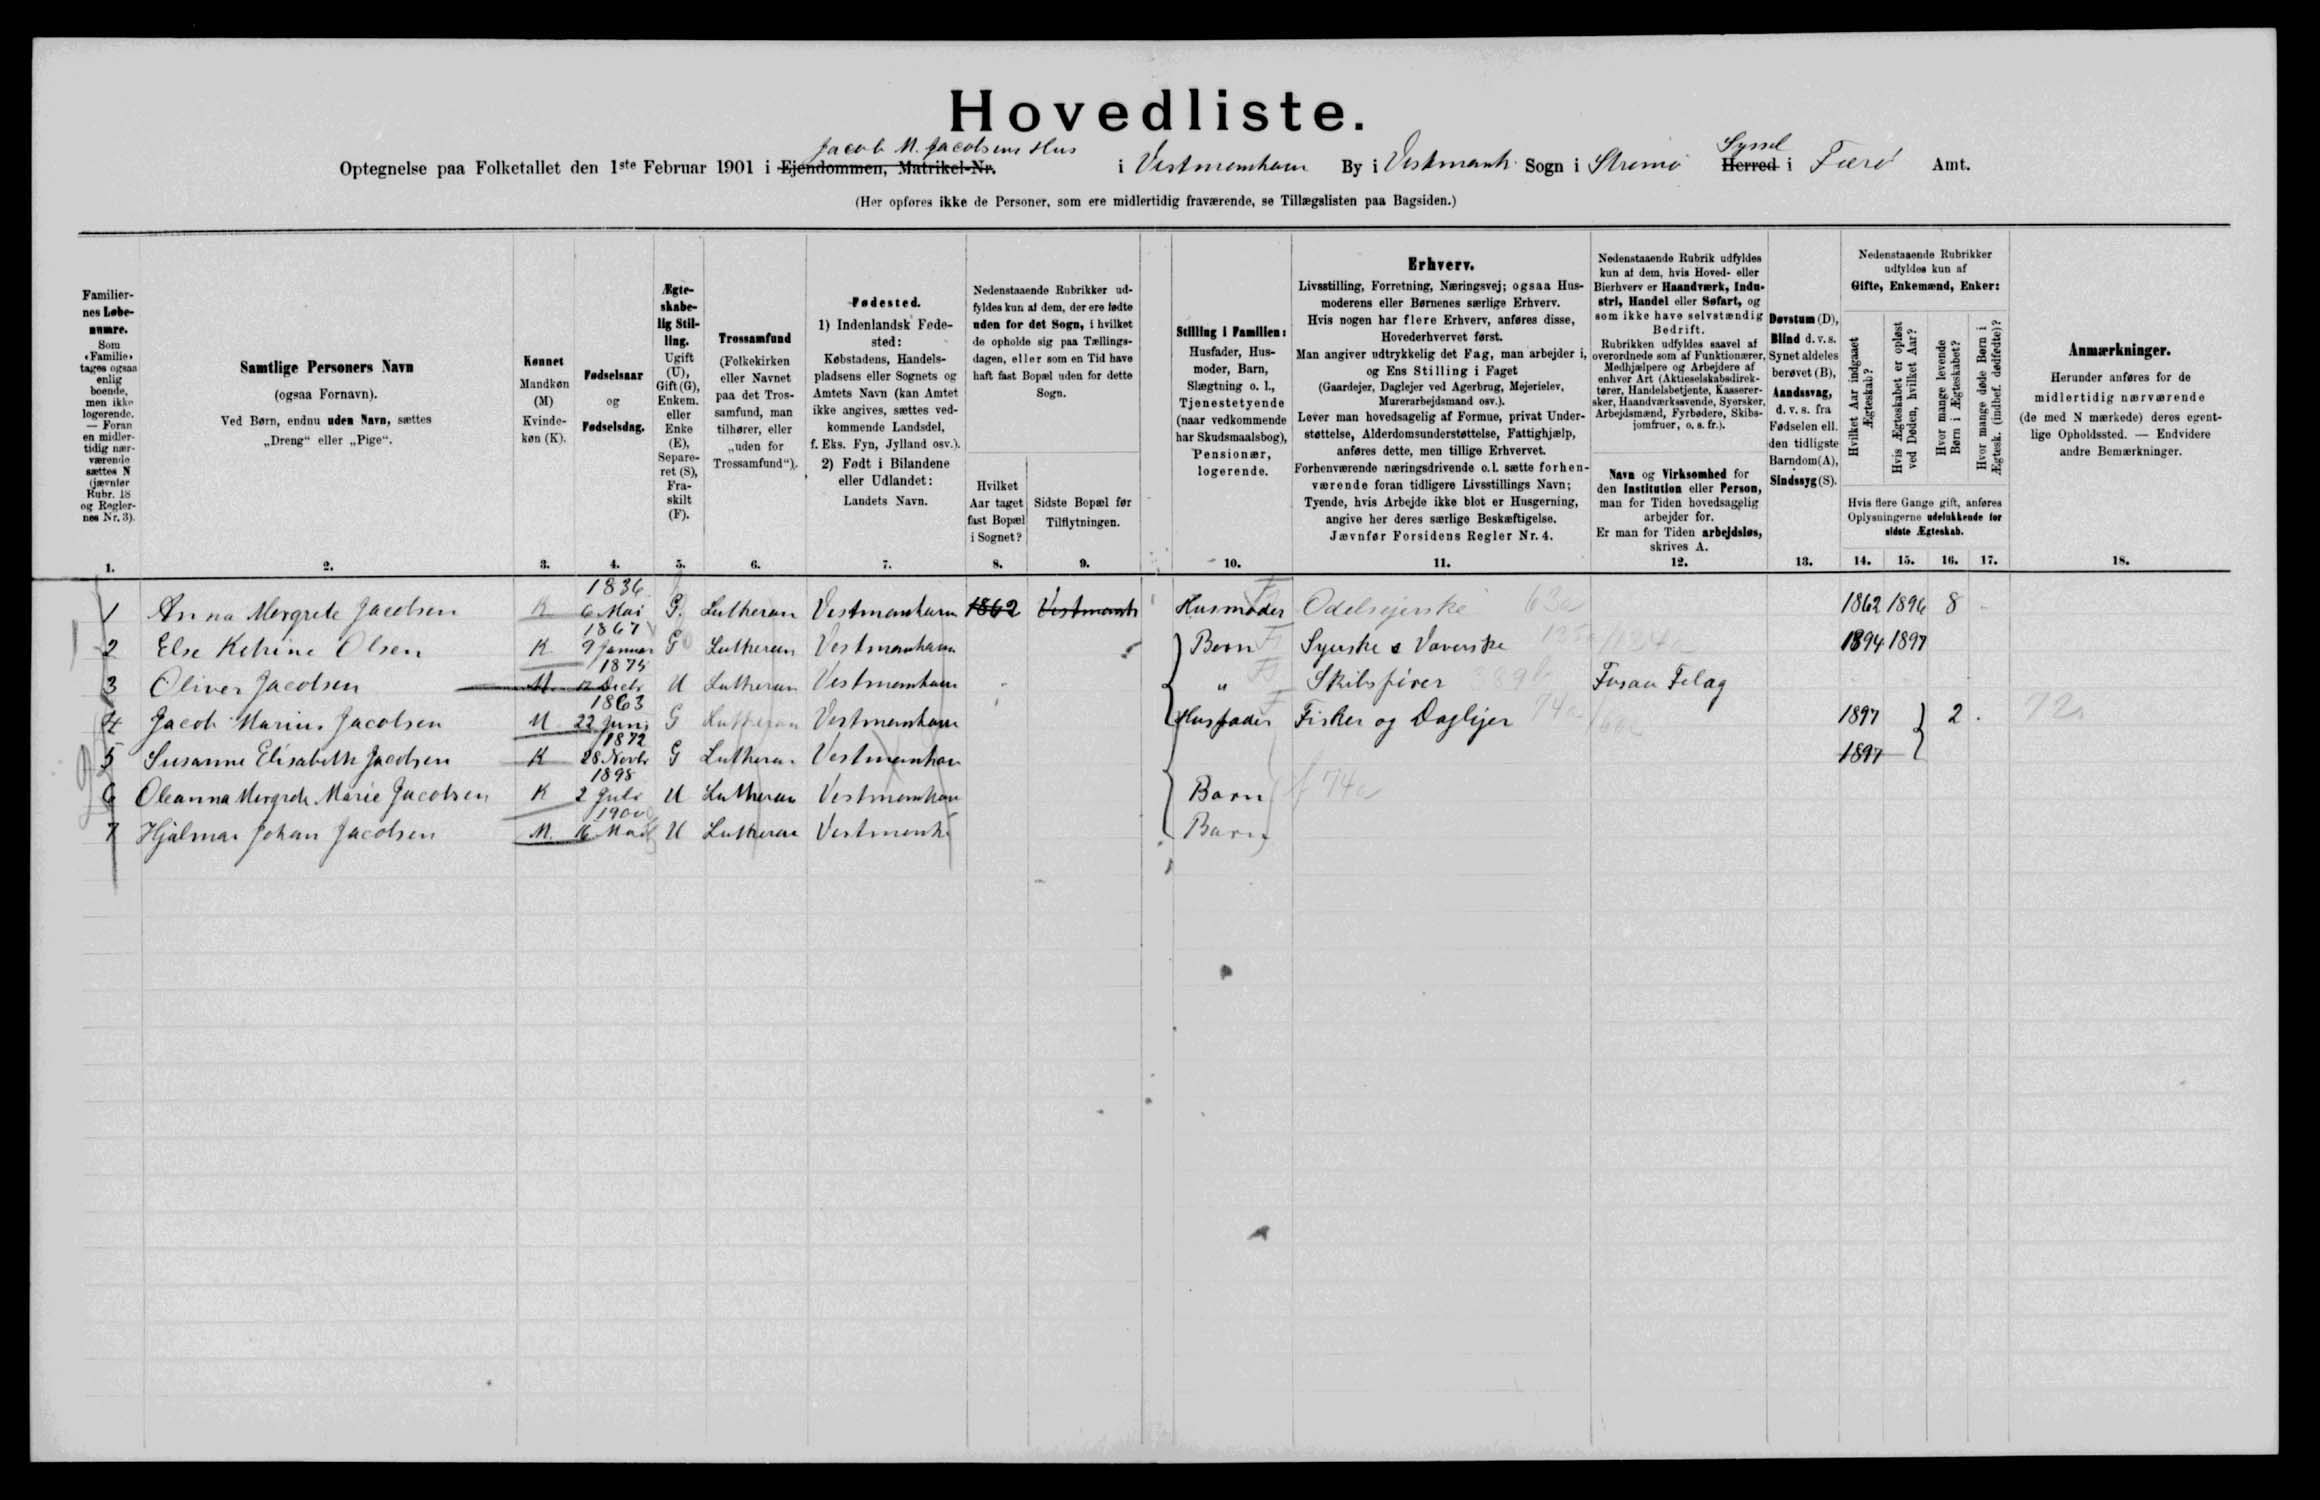 Hovedliste.
Jacob M. Jacobsens Hus
Syssel
Optegnelse paa Folketallet den 1ste Februar 1901 i Ejendommen, Matrikel-Nr. i Vestmanhavn By i Vestmanh. Sogn i Strømø Herred i Færø Amt.
(Her opføres ikke de Personer, som ere midlertidig fraværende, se Tillægslisten paa Bagsiden.)
Familiernes Løbenumre.
Som «Familie» tages ogsaa enlig boende, men ikke logerende. — Foran en midlertidig nærværende sættes N (jævnfør Rubr. 18 og Regler- nes Nr. 3).
Samtlige Personers Navn
(ogsaa Fornavn).
Ved Børn, endnu uden Navn, sættes
„Dreng“ eller „Pige“.
Kønnet
Mandkøn (M)
Kvindekøn (K).
Fødselsaar
og
Fødselsdag.
Ægteskabelig Stilling.
Ugift (U), Gift (G), Enkem. eller Enke (E), Separeret (S), Fraskilt (F).
Trossamfund
(Folkekirken eller Navnet paa det Trossamfund, man tilhører, eller „uden for Trossamfund“).
Fødested.
1) Indenlandsk Fødested:
Købstadens, Handelspladsens eller Sognets og Amtets Navn (kan Amtet ikke angives, sættes vedkommende Landsdel, f. Eks. Fyn, Jylland osv.).
2) Født i Bilandene eller Udlandet:
Landets Navn.
Nedenstaaende Rubrikker udfyldes kun af dem, der ere fødte uden for det Sogn, i hvilket de opholde sig paa Tællingsdagen, eller som en Tid have haft fast Bopæl uden for dette Sogn.
Hvilket Aar taget fast Bopæl i Sognet?
Sidste Bopæl før Tilflytningen.
Stilling i Familien:
Husfader, Husmoder, Barn, Slægtning o. l., Tjenestetyende (naar vedkommende har Skudsmaalsbog), Pensionær, logerende.
Erhverv.
Livsstilling, Forretning, Næringsvej; ogsaa Husmoderens eller Børnenes særlige Erhverv.
Hvis nogen har flere Erhverv, anføres disse, Hovederhvervet først.
Man angiver udtrykkelig det Fag, man arbejder i, og Ens Stilling i Faget
(Gaardejer, Daglejer ved Agerbrug, Mejerielev, Murerarbejdsmand osv.).
Lever man hovedsagelig af Formue, privat Understøttelse, Alderdomsunderstøttelse, Fattighjælp, anføres dette, men tillige Erhvervet.
Forhenværende næringsdrivende o. l. sætte forhenværende foran tidligere Livsstillings Navn;
Tyende, hvis Arbejde ikke blot er Husgerning, angive her deres særlige Beskæftigelse.
Jævnfør Forsidens Regler Nr. 4.
Nedenstaaende Rubrik udfyldes kun af dem, hvis Hoved- eller Bierhverv er Haandværk, Industri, Handel eller Søfart, og som ikke have selvstændig Bedrift.
Rubrikken udfyldes saavel af overordnede som af Funktionærer, Medhjælpere og Arbejdere af enhver Art (Aktieselskabsdirektører, Handelsbetjente, Kasserersker, Haandværkssvende, Syersker, Arbejdsmænd, Fyrbødere, Skibsjomfruer, o. s. fr.).
Navn og Virksomhed for den Institution eller Person, man for Tiden hovedsagelig arbejder for.
Er man for Tiden arbejdsløs, skrives A.
Døvstum (D), Blind d. v. s. Synet aldeles berøvet (B), Aandssvag, d. v. s. fra Fødselen ell. den tidligste Barndom (A), Sindssyg (S).
Nedenstaaende Rubrikker udfyldes kun af
Gifte, Enkemænd, Enker:
Hvilket Aar indgaaet Ægteskab?
Hvis Ægteskabet er opløst ved Døden, hvilket Aar?
Hvor mange levende Børn i Ægteskabet?
Hvor mange døde Børn i Ægtesk. (indbef. dødfødte)?
Hvis flere Gange gift, anføres Oplysningerne udelukkende for sidste Ægteskab.
Anmærkninger.
Herunder anføres for de midlertidig nærværende (de med N mærkede) deres egentlige Opholdssted. — Endvidere andre Bemærkninger.
1. 2. 3. 4. 5. 6. 7. 8. 9. 10. 11. 12. 13. 14. 15. 16. 17. 18.
1 Anna Margrete Jacobsen K 1836 6 Mai G. Lutheran Vestmanhavn 1862 Vestmanh Husmoder Odelsejerske 63a 1862 1896 8 -
2 Else Katrine Olsen K 1867 9 Januar G Lutheran Vestmanhavn Børn Syerske & Væverske 1894 1897
3 Oliver Jacobsen M 1875 12 Decbr U Lutheran Vestmanhavn " Skibsfører 389b Fosaa Felag
4 Jacob Marius Jacobsen M 1863 22 Juni G Lutheran Vestmanhavn Husfader Fisker og Daglejer 74a 1897 2 . 72
5 Susanne Elisabeth Jacobsen K 1872 28 Novbr G Lutheran Vestmanhavn 1897
6 Oleanna Margrete Marie Jacobsen K 1898 2 Juli U Lutheran Vestmanhavn Barn f 74a
7 Hjalmar Johan Jacobsen M. 1900 16 Mai U Lutheran Vestmanh Barn